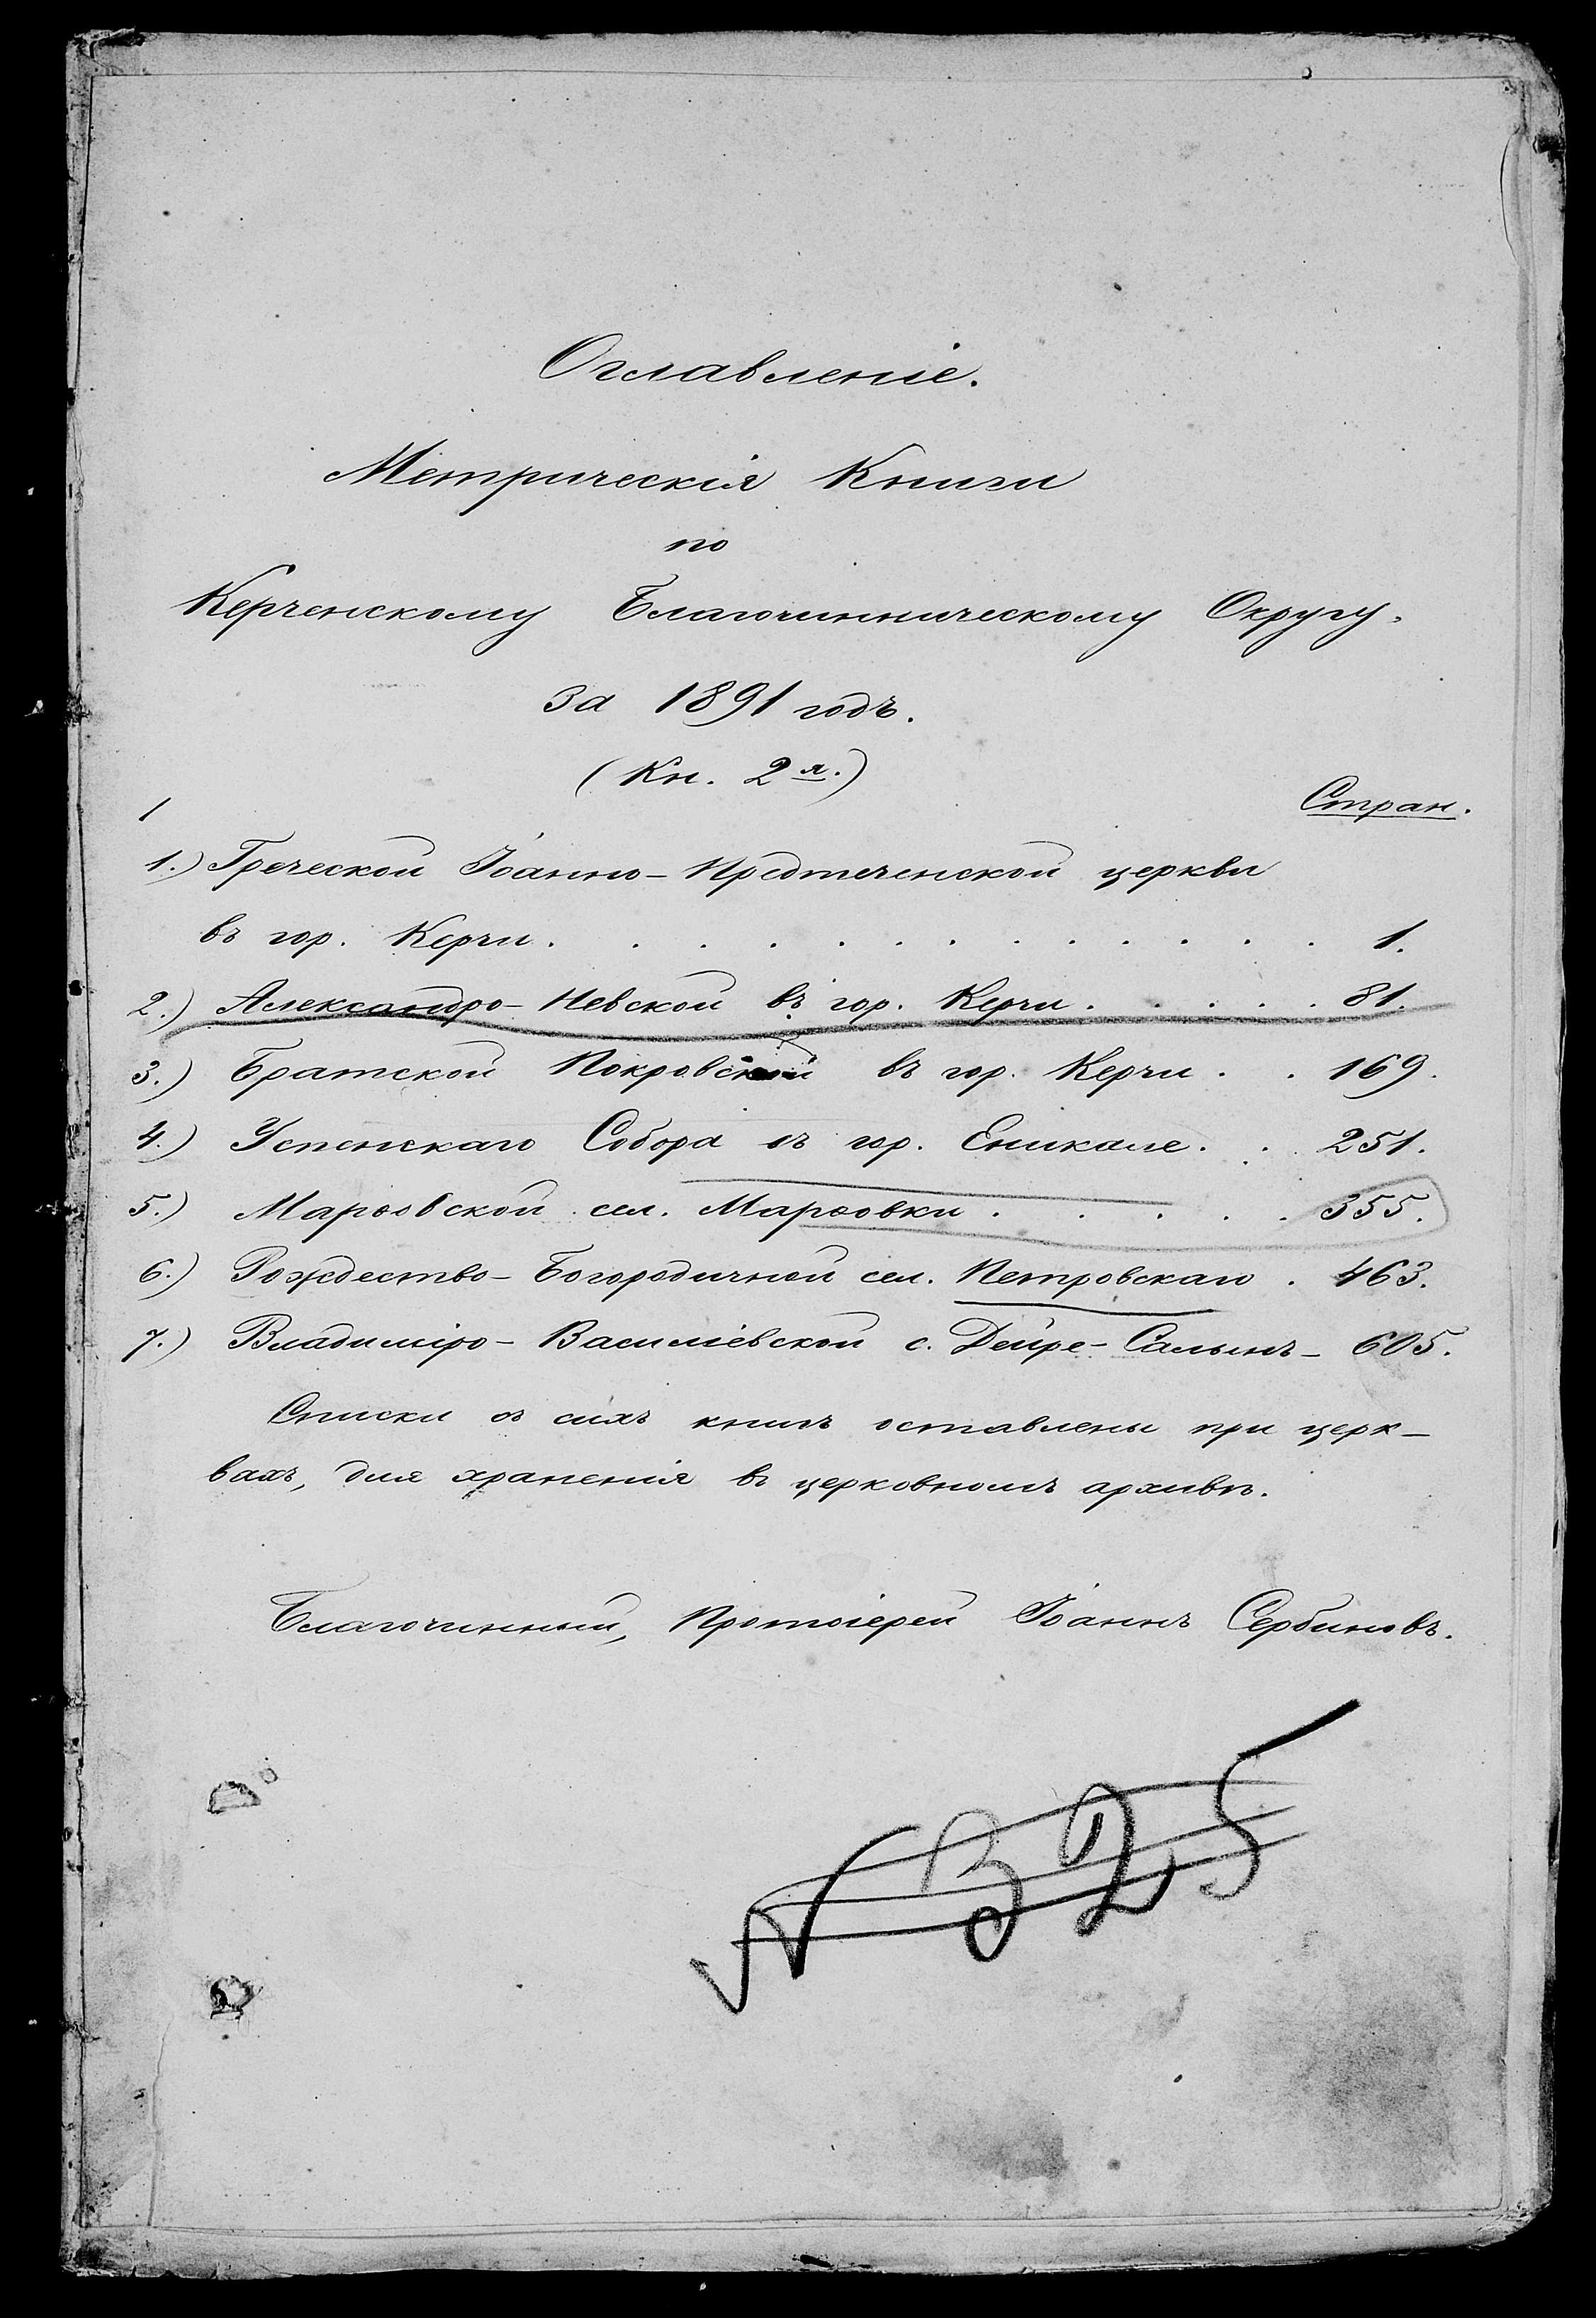 Оглавленіе.
Метрическія Книги
по
Керченскому Благочинническому Округу.
за 1891 годъ.
(Кн. 2я.)
Стран.
1
1.) Греческой Іоанно-Предтеченской церкви
въ гор. Керчи. . . . . . . . . . . . . 1.
2.) Александро-Невской въ гор. Керчи. . . . . 81.
3.) Братской Покровской въ гор. Керчи . . 169.
4.) Успенскаго Собора въ гор. Еникале. . . 251.
5.) Марѳовской сел. Марѳовки . . . . . 355.
6.) Рождество-Богородичной сел. Петровскаго . 463.
7.) Владиміро-Васильевской с. Дейре-Салынъ- 605.
Списки съ сихъ книгъ оставлены при церк-
вахъ, для храненія въ церковномъ архивѣ.
Благочинный, Протоіерей Іоаннъ Сербиновъ.
№ 325